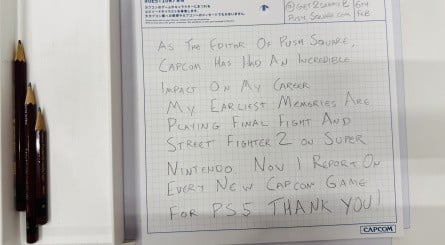 As The Editor Of Push Square,
Capcom Has Had An Incredible
Impact On My Career
My Earliest Memories Are
Playing Final Fight And
Street Fighter 2 On Super
Nintendo. Now I Report On
Every New Capcom Game
For PS5 THANK YOU!
CAPCOM